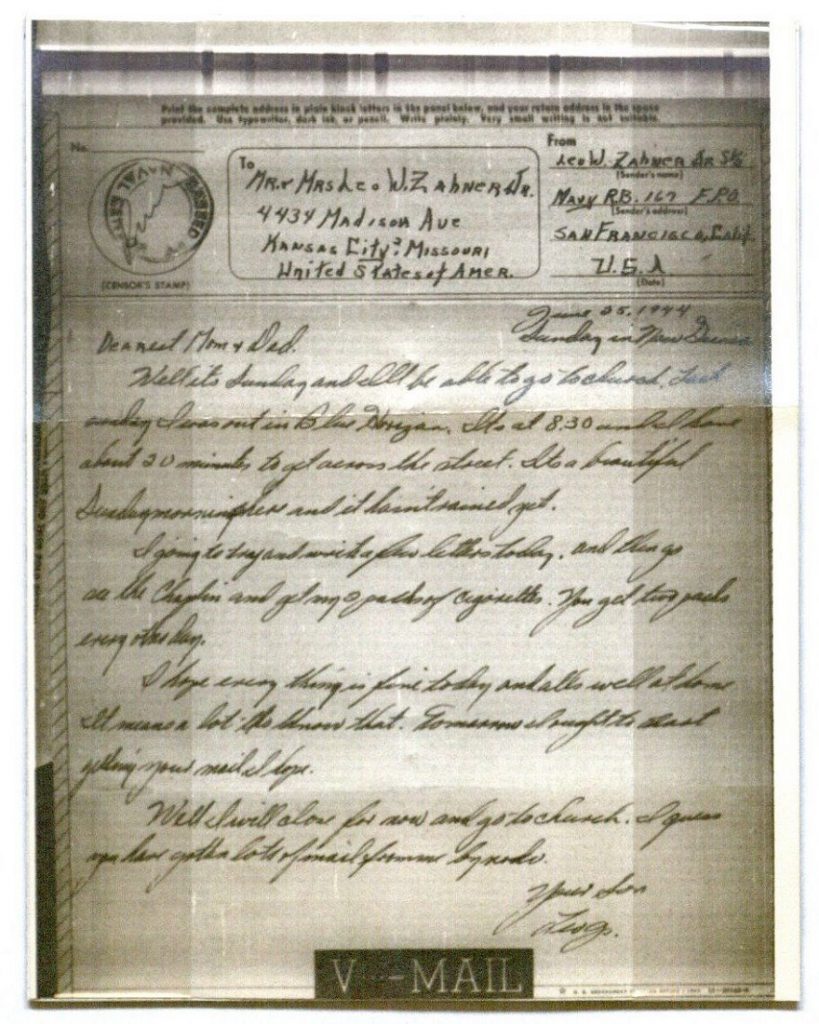 Print the complete address in plain block letters in the panel below, and your return address in the space
provided. Use typewriter, dark ink, or pencil. Write plainly. Very small writing is not suitable.
No.
To
Mr. & Mrs Leo W. Zahner Jr.
4434 Madison Ave
Kansas City 2, Missouri
United States of Amer.
From
Leo W. Zahner Jr
(Sender's name)
Navy P.B. 167 F.P.O.
(Sender's address)
San Francisco, Calif.
U.S.A
(Date)
PASSED NAVAL
(CENSOR'S STAMP)
June 25, 1944
Sunday in New
Dearest Mom & Dad.
Well its Sunday and I'll be able to go to church. Last
Sunday I was out in Blue. Its at 8:30 and I have
about 20 minutes to get across the street. Its a beautiful
Sunday morning here and it hasn't rained yet.
I going to try and write a few letters today. and then go
see the Chaplin and get my 2 packs of cigarettes. You get two packs
every other day.
I hope every thing is fine today and alls well at home
It means a lot to know that. Tomorrow I ought to start
getting your mail I hope.
Well I will close for now and go to church. I guess
you have gotten lots of mail from me by now.
Your Son
Leo Jr.
V - MAIL